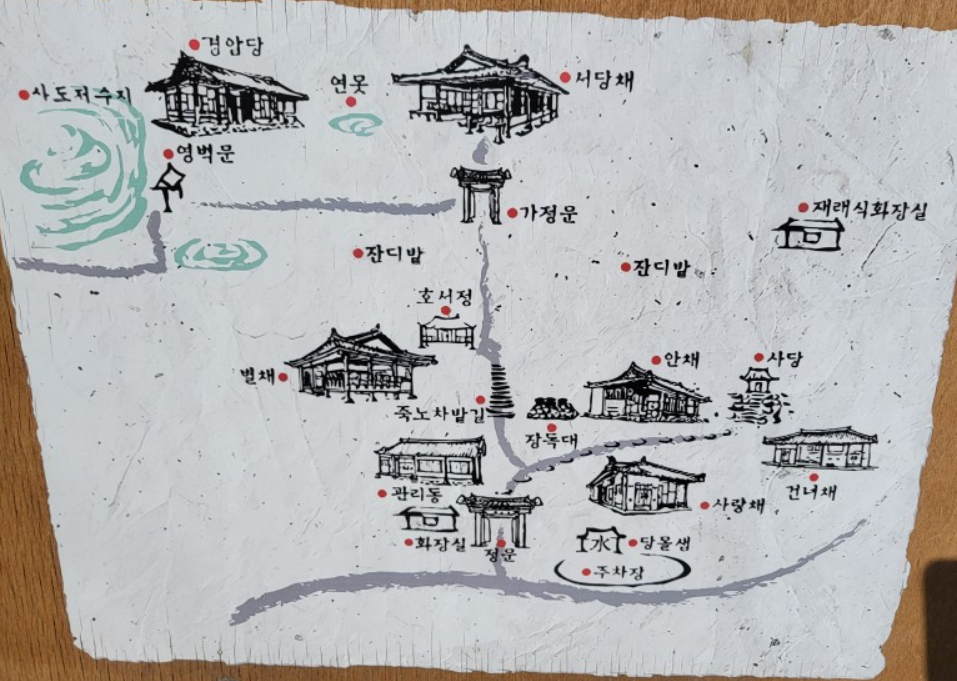 경암당
연못
서당채
사도저수지
영벽문
가정문
재래식화장실
잔디밭
잔디밭
호서정
별채
안채
사당
죽노차밭길
장독대
관리동
건너채
사랑채
화장실
정문
水
당몰샘
주차장